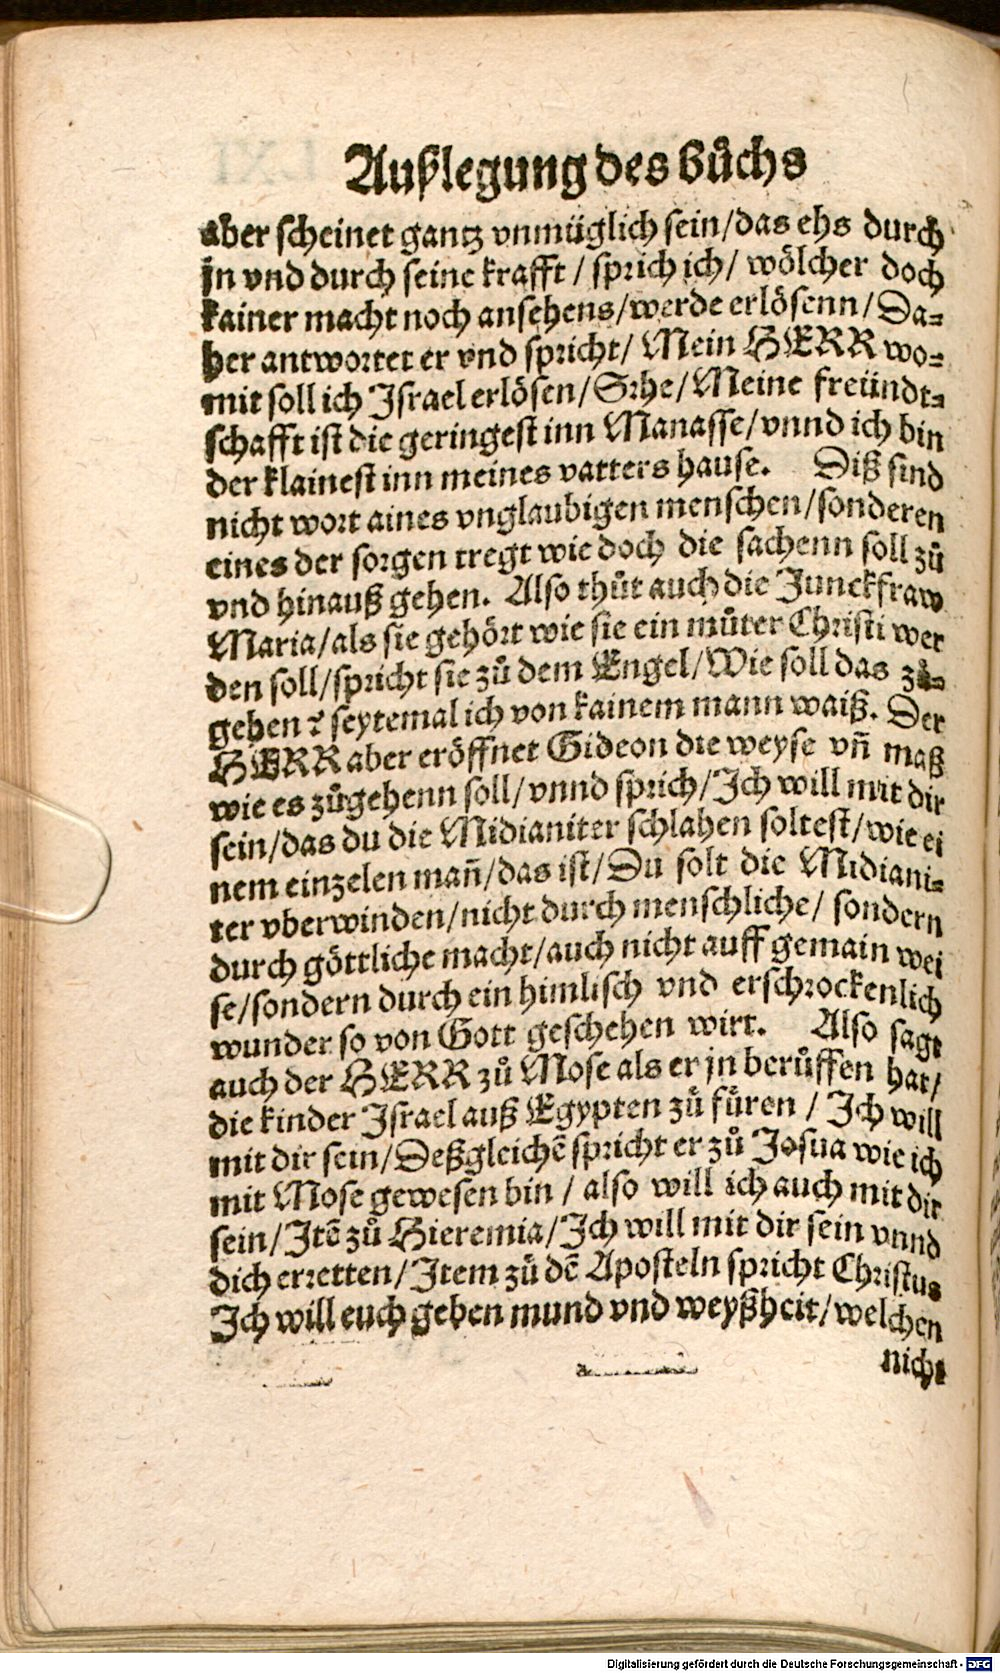 Außlegung des bůchs
aber scheinet gantz vnmüglich sein/das ehs durch
jn vnd durch seine krafft / sprich ich/ wölcher doch
kainer macht noch ansehens/werde erlösenn/Da⸗
her antwortet er vnd spricht/ Mein HERR wo⸗
mit soll ich Israel erlösen/Srhe/Meine freündt⸗
schafft ist die geringest inn Manasse/vnnd ich bin
der klainest inn meines vatters hause. Diß sind
nicht wort aines vnglaubigen menschen/sonderen
eines der sorgen tregt wie doch die sachenn soll zů
vnd hinauß gehen. Also thůt auch die Junckfraw
Maria/als sie gehört wie sie ein můter Christi wer
den soll/spricht sie zů dem Engel/Wie soll das zů⸗
gehen? seytemal ich von kainem mann waiß. Der
HERR aber eröffnet Gideon die weyse vñ maß
wie es zůgehenn soll/vnnd sprich/Ich will mit dir
sein/das du die Midianiter schlahen soltest/wie ei
nem einzelen mañ/das ist/Du solt die Midiani⸗
ter vberwinden/nicht durch menschliche/ sondern
durch göttliche macht/auch nicht auff gemain wei
se/sondern durch ein himlisch vnd erschrockenlich
wunder so von Gott geschehen wirt. Also sagt
auch der HERR zů Mose als er jn berůffen hat/
die kinder Israel auß Egypten zů fůren / Ich will
mit dir sein/Deßgleichẽ spricht er zů Josua wie ich
mit Mose gewesen bin / also will ich auch mit dir
sein/Itẽ zů Hieremia/Ich will mit dir sein vnnd
dich erretten/Item zů dẽ Aposteln spricht Christus
Ich will euch geben mund vnd weyßheit/welchen
nicht
Digitalisierung gefördert durch die Deutsche Forschungsgemeinschaft - DFG